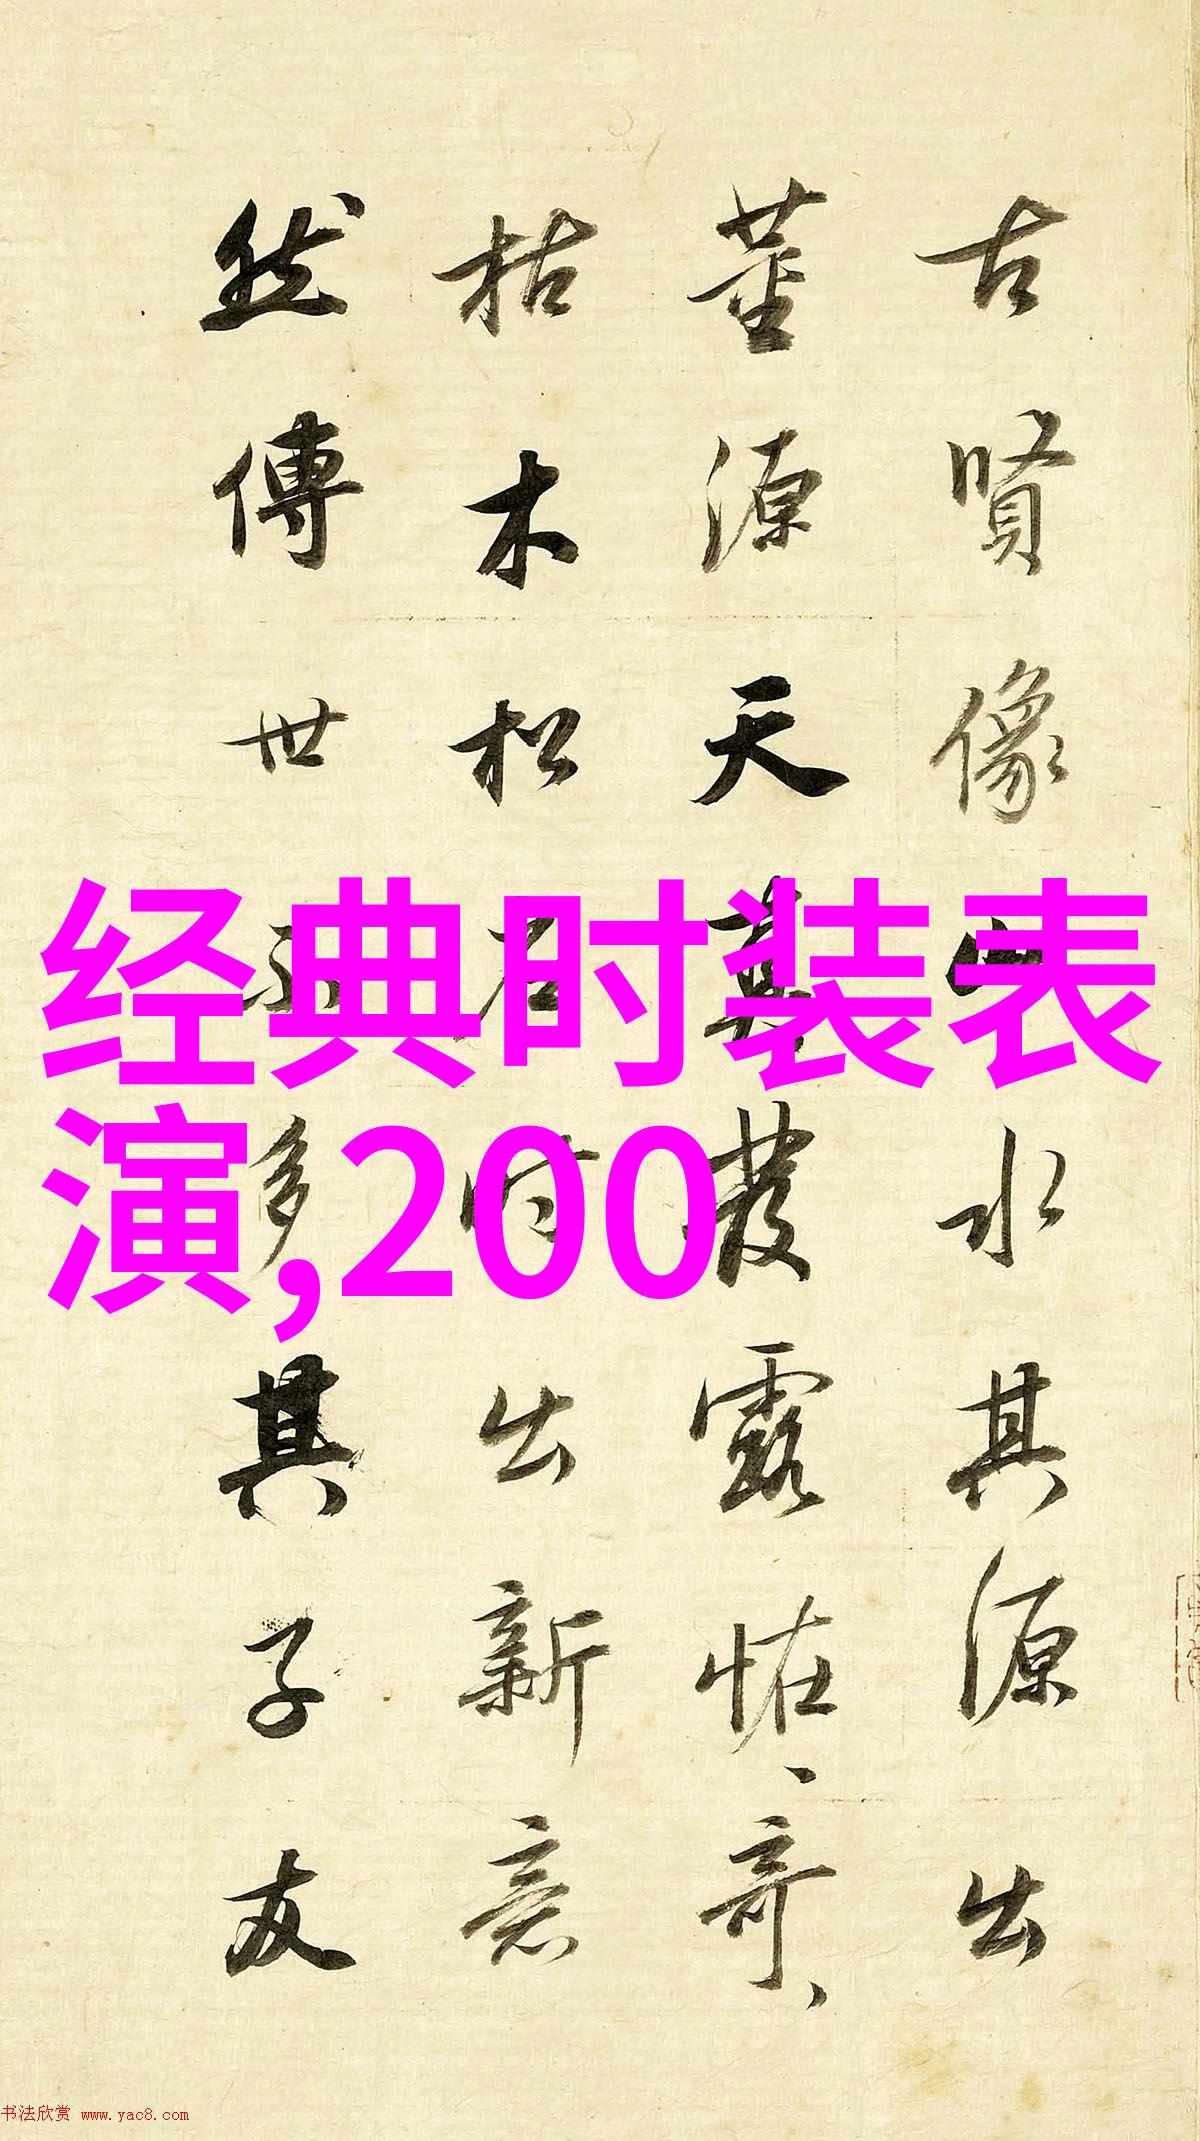 古賢像山水其源出
董源天真發露恠奇
枯木松石時出新意
然傳世不多其子友
经典时装表
演,200
书法欣赏 www.yac8.com